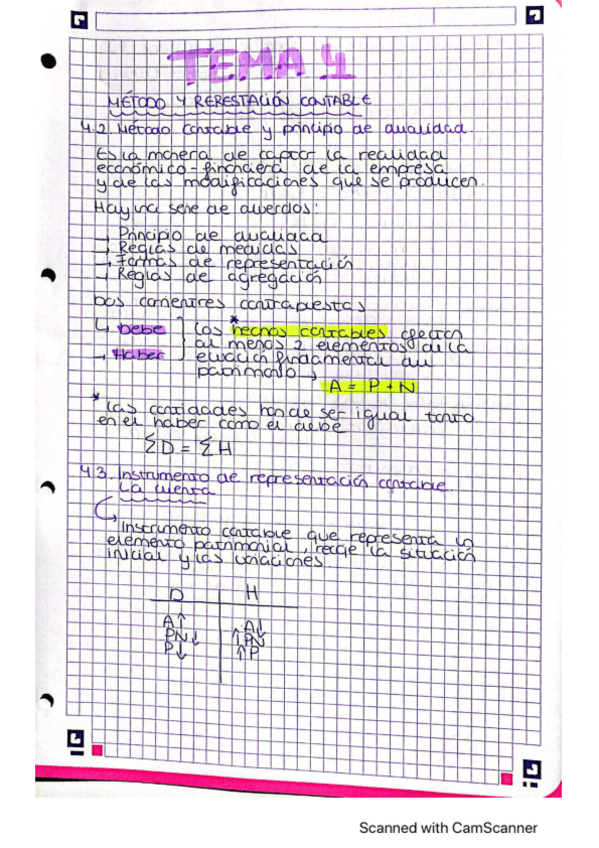 TEMA 4
MÉTODO Y REPRESTACIÓN CONTABLE
4.2. Método contable y principio de dualidad.
Es la manera de captar la realidad
económico-financiera de la empresa
y de las modificaciones que se producen.
Hay una serie de acuerdos:
→ Principio de dualidad
→ Reglas de medidas
→ Formas de representación
→ Reglas de agregación
Dos corrientes contrapuestas
↳ Debe } Los *hechos contables afectan
al menos 2 elementos de la
→ Haber } ecuación fundamental del
patrimonio →
A = P + N
* Las cantidades han de ser igual tanto
en el haber como el debe
ΣD = ΣH
4.3. Instrumento de representación contable.
La cuenta
↳ Instrumento contable que representa un
elemento patrimonial, recoge la situación
inicial y las variaciones.
D H
A↑ A↓
PN↓ ↑PN
P↓ ↑P
Scanned with CamScanner